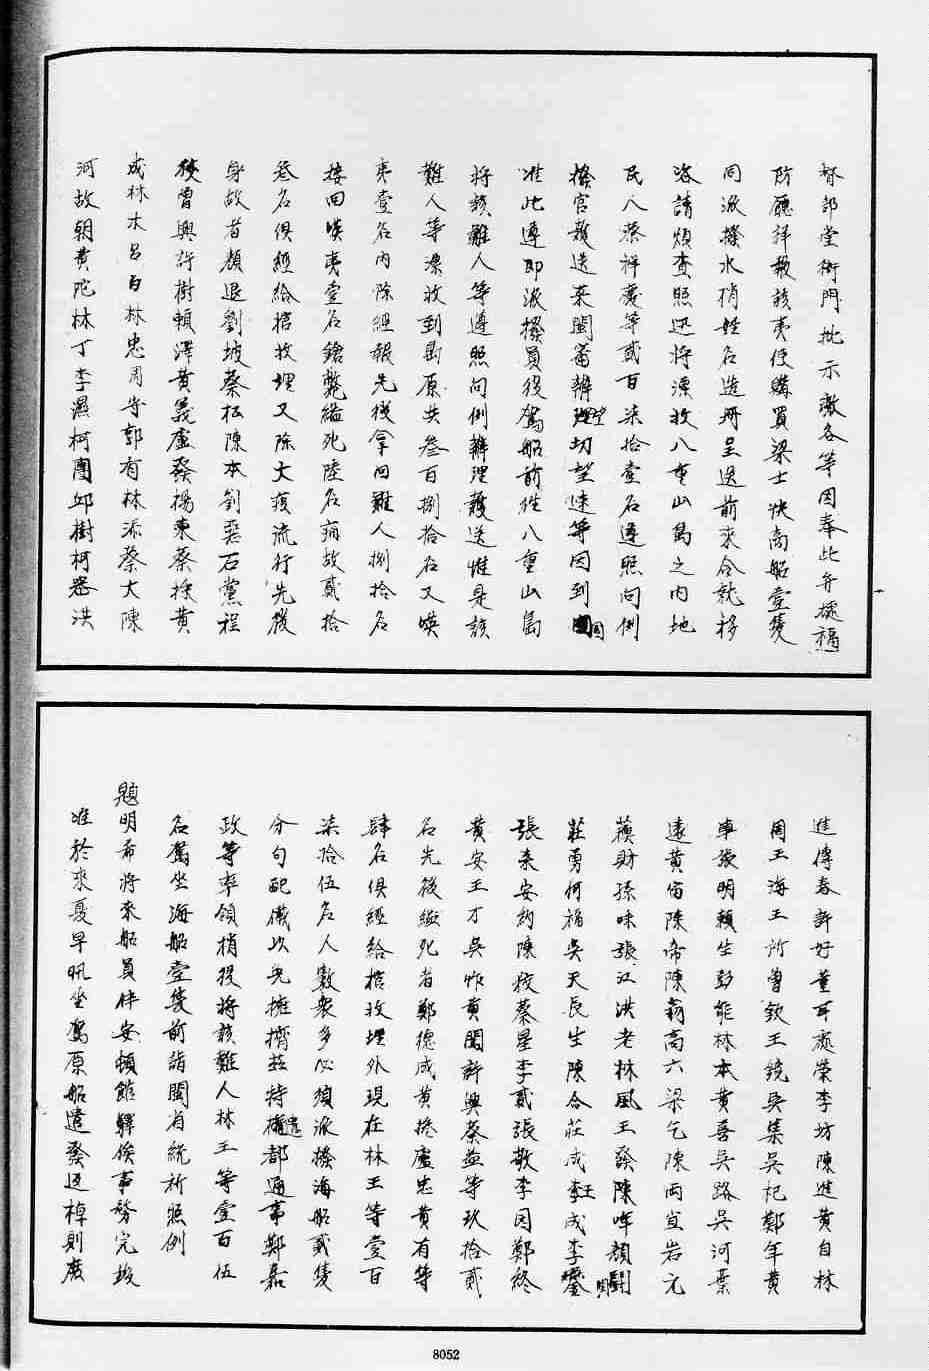 督部堂衙門批示激各等因奉此并據福
防廳詳報該夷使購買梁士快商船壹隻
同派撥水梢姓名造冊呈送前來合就移
咨請煩查照迅將漂收八重山島之內地
民人蔡祥慶等貳百柒拾壹名遵照向例
撥官護送來閩酱辦理切望速等因到國
准此遵即派撥員役駕船前往八重山島
將該難人等遵照向例辦理護送惟是該
難人等漂收到島原共叁百捌拾名又嘆
夷壹名內除經報先後拿回難人捌拾名
接回嘆夷壹名鎗斃縊死陸名病故貳拾
叁名俱經給棺收埋又除大疫流行先後
身故者顏退劉坡蔡松陳本劉惡石黨程
後曾興許樹賴澤黃義盧發楊東蔡探黃
成林木呂百林忠周守郭有林添蔡大陳
河故朝黃陀林丁李濕柯團邱樹柯器洪
進傳春許好董耳處榮李坊陳進黃自林
周王海王所曾欽王鏡吳集吳杞鄭年黃
車張明賴生彭能林本黃喜吳路吳河葉
遠黃宙陳帝陳寫高六梁乞陳両宜岩元
蘋財孫味張江洪老林風王發陳哞顏鬮
莊勇何福吳天長生陳合莊成李王成李銮
張來安約陳狡蔡星李貳張敬李因鄭終
黃安王才吳炸黃闖許興蔡益等玖拾貳
名先後縊死者鄭德成黃捲盧忠黃有等
肆名俱經給棺收埋外現在林玉等壹百
柒拾伍名人數衆多必須派撥海船貳隻
分勻配儀以免擁擠茲特遣都通事鄭嘉
政等率領梢役將該難人林王等壹百伍
名駕坐海船壹隻前詣閩省統祈照例
題明希將來船員伴安頓館驛俟事務完竣
准於來夏早汛坐駕原船遣發返棹則庶
8052